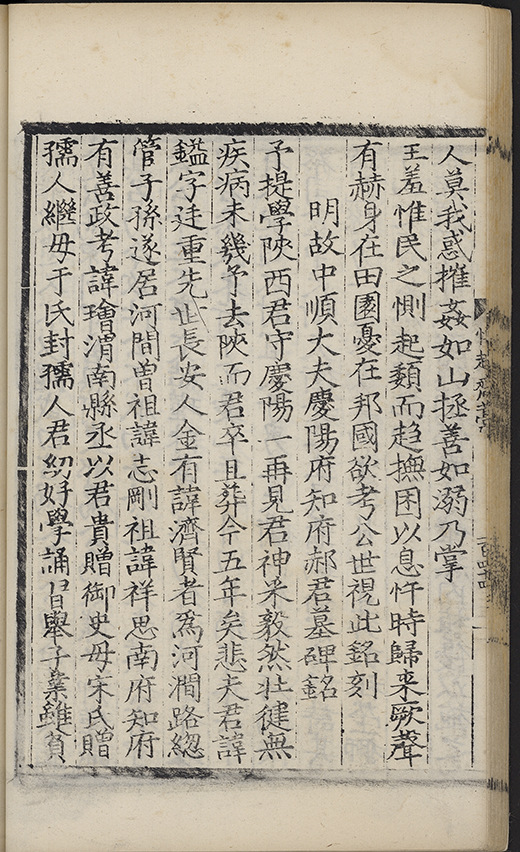 人莫我惑摧姦如山拯善如溺乃掌
王羞惟民之惻起顙而趋撫困以息忤時歸來厥聲
有赫身在田園憂在邦國欲考公世視此銘刻
明故中順大夫慶陽府知府郝君墓碑銘
予提學陜西君守慶陽一再見君神采毅然壮徤無
疾病未幾予去陜而君卒且葬今五年矣悲夫君諱
鎰字廷重先世長安人金有諱濟賢者爲河澗路緫
管子孫遂居河間曽祖諱志剛祖諱祥思南府知府
有善政考諱璯渭南縣丞以君貴贈御史母宋氏贈
孺人繼母于氏封孺人君幼好學誦習舉子業雖貧